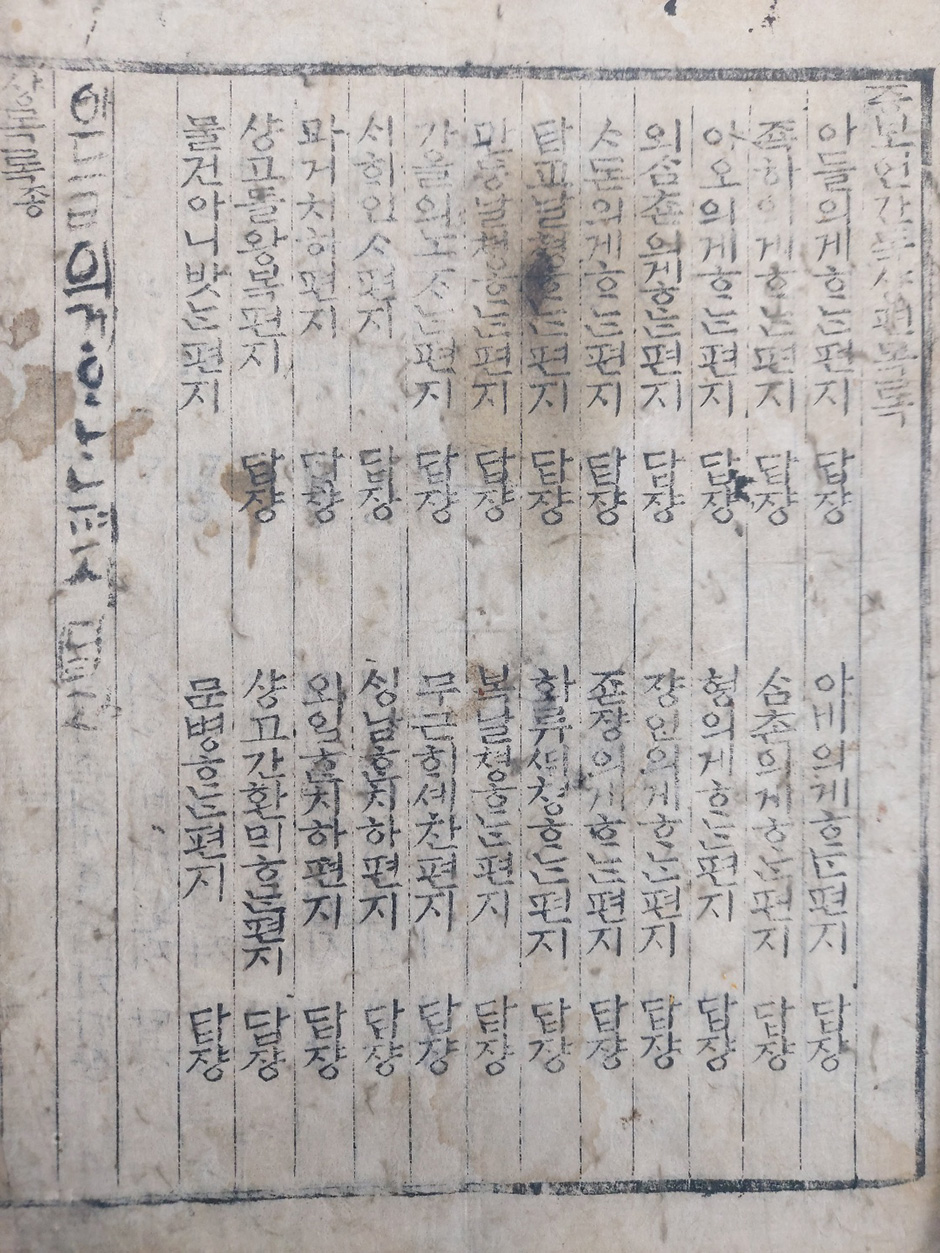 증보언간독샹편목록
아들의게ᄒᆞᄂᆞᆫ편지 답쟝 아비의게ᄒᆞᄂᆞᆫ편지 답쟝
족하의게ᄒᆞᄂᆞᆫ편지 답쟝 삼촌의게ᄒᆞᄂᆞᆫ편지 답쟝
아오의게ᄒᆞᄂᆞᆫ편지 답쟝 형의게ᄒᆞᄂᆞᆫ편지 답쟝
외삼촌의게ᄒᆞᄂᆞᆫ편지 답쟝 쟝인의게ᄒᆞᄂᆞᆫ편지 답쟝
ᄉᆞ돈의게ᄒᆞᄂᆞᆫ편지 답쟝 존쟝의게ᄒᆞᄂᆞᆫ편지 답쟝
답교달쳥ᄒᆞᄂᆞᆫ편지 답쟝 화류ᄯᆡ쳥ᄒᆞᄂᆞᆫ편지 답쟝
관등달쳥ᄒᆞᄂᆞᆫ편지 답쟝 복날쳥ᄒᆞᄂᆞᆫ편지 답쟝
가을의노ᄌᆞᄂᆞᆫ편지 답쟝 무근ᄒᆡ셰찬편지 답쟝
ᄉᆡᄒᆡ인ᄉᆞ편지 답쟝 ᄉᆡᆼ남ᄒᆞᆫ치하편지 답쟝
과거치하편지 답쟝 외임ᄒᆞᆫ치하편지 답쟝
샹고들왕복편지 답쟝 샹고간환미ᄒᆞᄂᆞᆫ편지 답쟝
물건아니밧ᄂᆞᆫ편지 문병ᄒᆞᄂᆞᆫ편지 답쟝
아들의게ᄒᆞᄂᆞᆫ편지
목록종